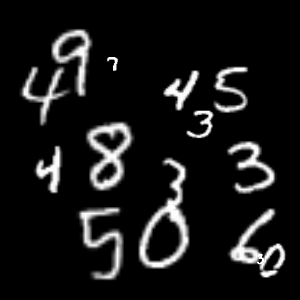 4 9 7 4 5
3
4 8 3 3
5 0 6 0